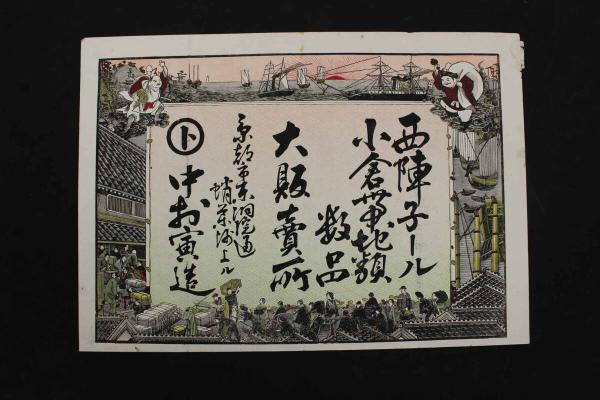 西陣子ール
小倉帯地類
数品
大販賣所
京都市東洞院通
蛸薬師上ル
ト
中村寅造